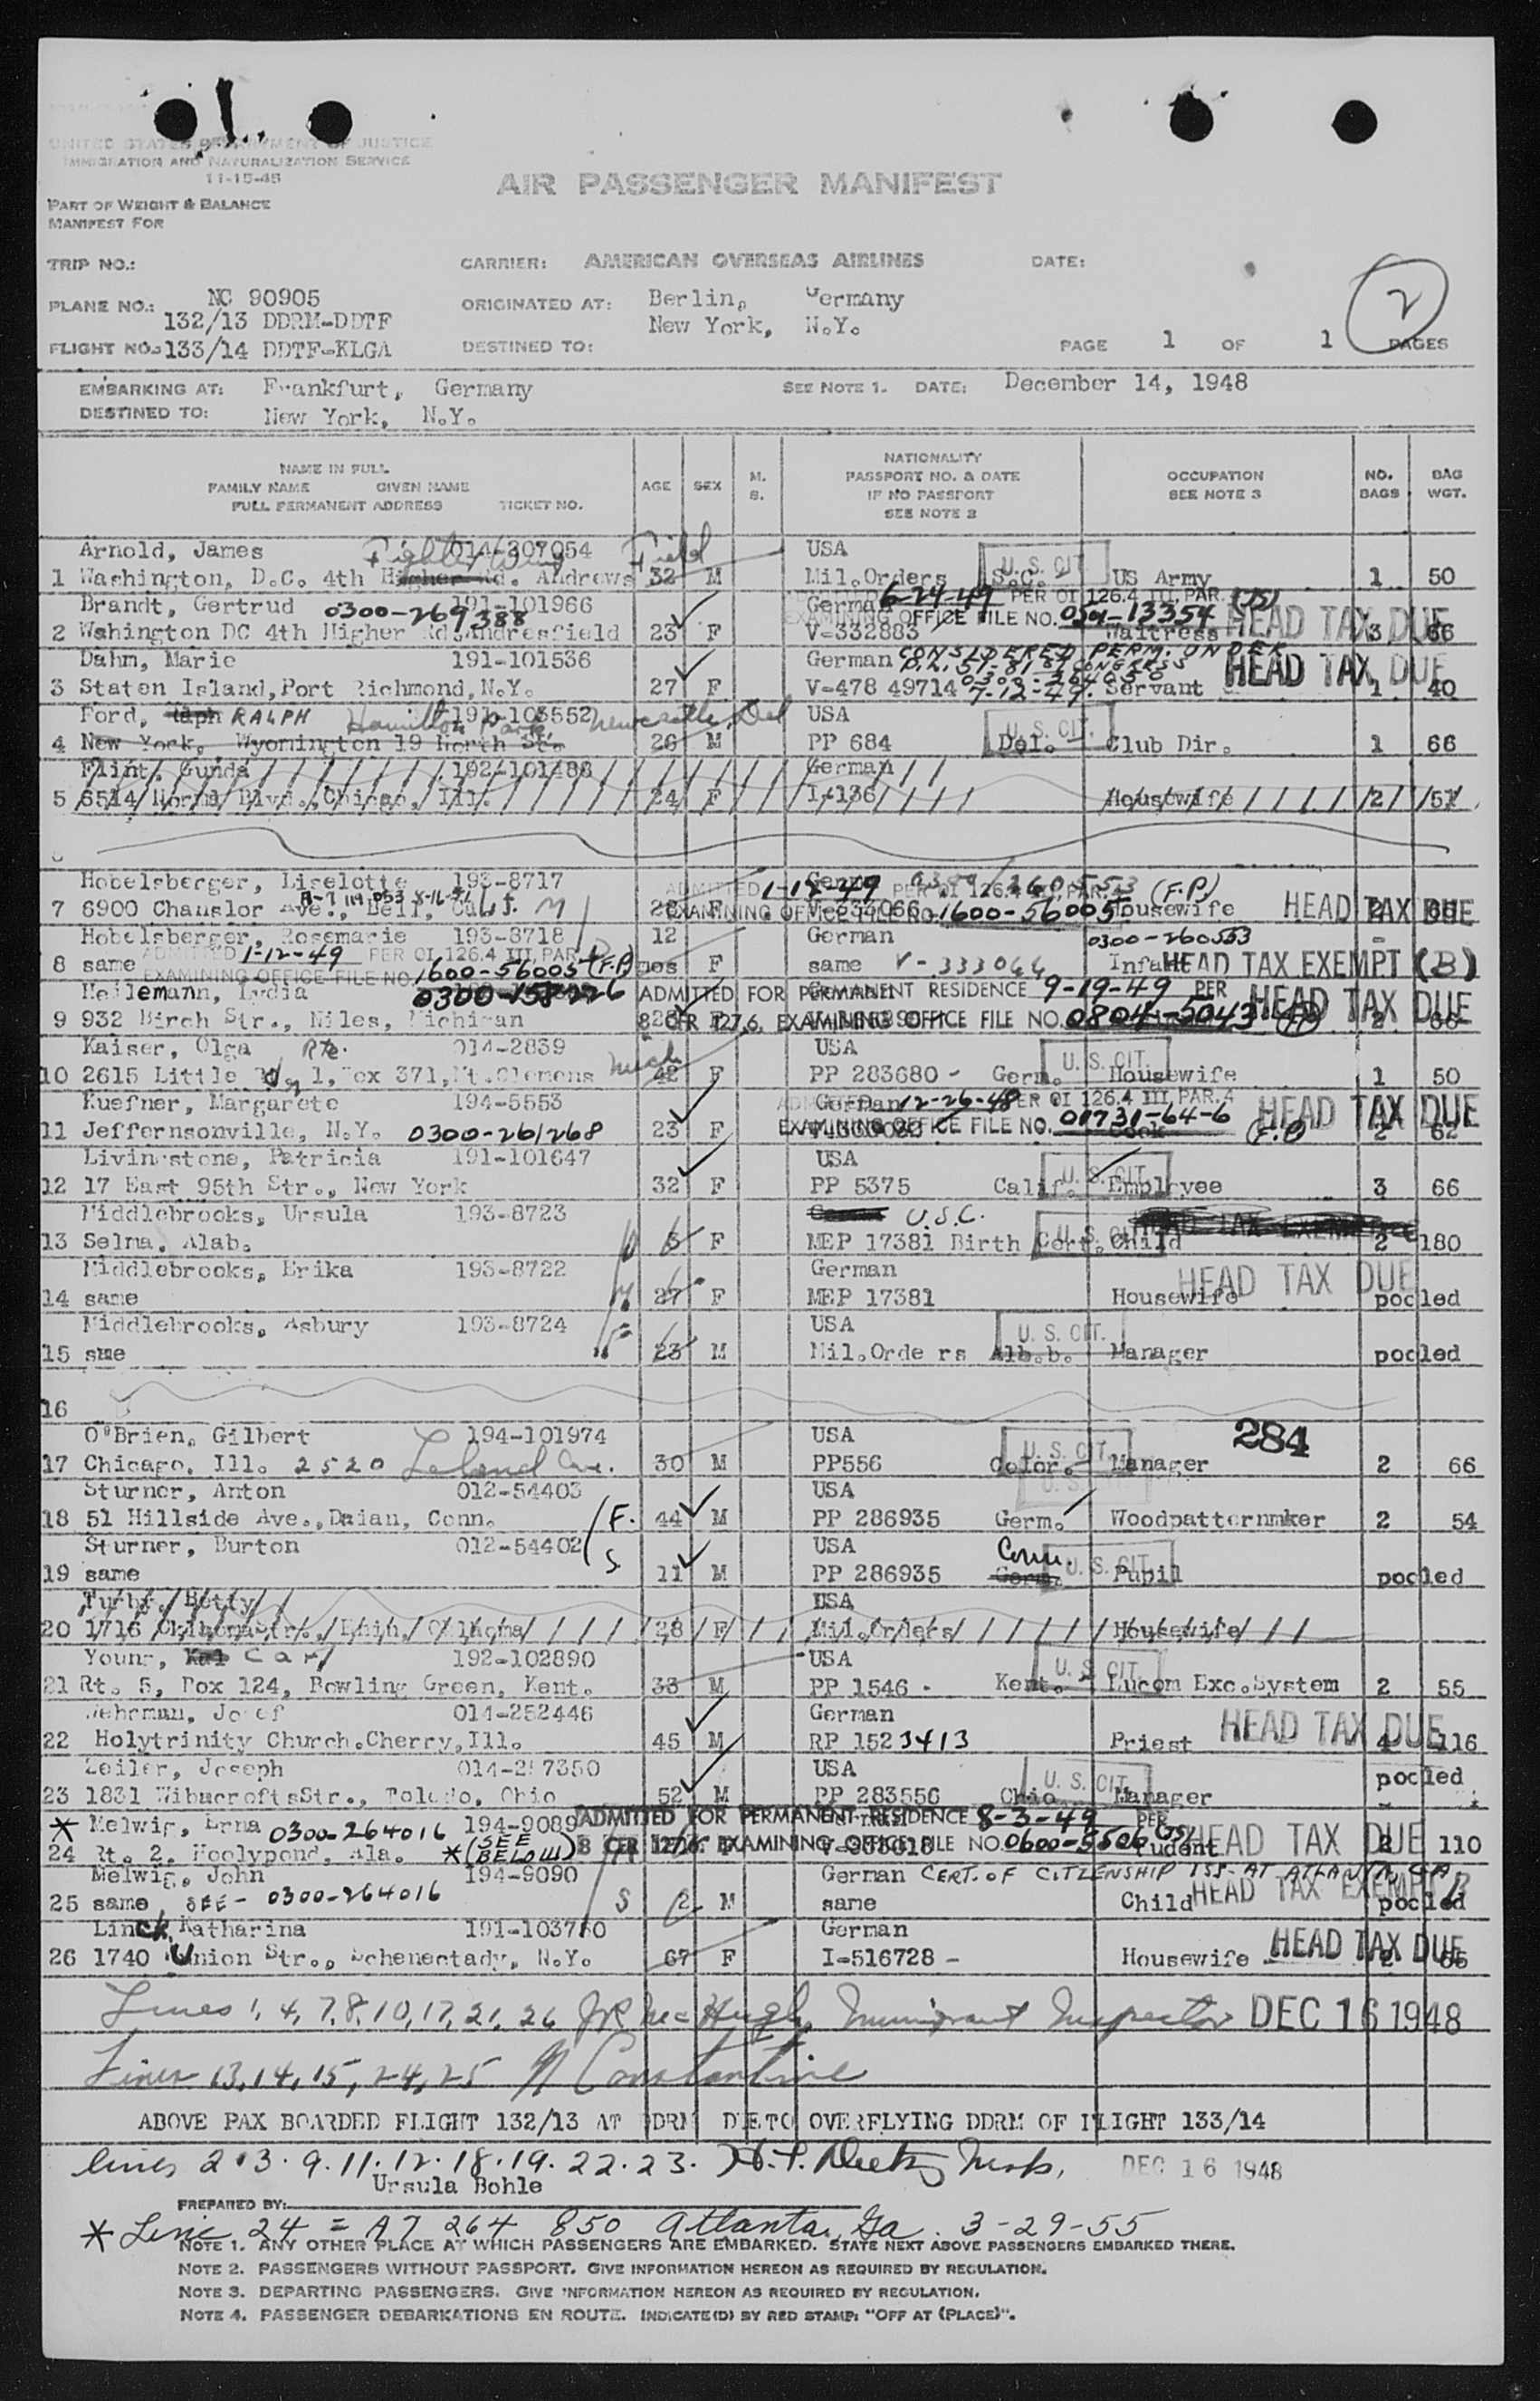 UNITED STATES DEPARTMENT OF JUSTICE
IMMIGRATION AND NATURALIZATION SERVICE
11-15-45
AIR PASSENGER MANIFEST
PART OF WEIGHT & BALANCE
MANIFEST FOR
TRIP NO.: CARRIER: AMERICAN OVERSEAS AIRLINES DATE:
PLANE NO.: NC 90905 ORIGINATED AT: Berlin, Germany 2
132/13 DDRM-DDTF New York, N.Y.
FLIGHT NO.: 133/14 DDTF-KLGA DESTINED TO: PAGE 1 OF 1 PAGES
EMBARKING AT: Frankfurt, Germany SEE NOTE 1. DATE: December 14, 1948
DESTINED TO: New York, N.Y.
NAME IN FULL
FAMILY NAME GIVEN NAME
FULL PERMANENT ADDRESS TICKET NO. AGE SEX M. S. NATIONALITY PASSPORT NO. & DATE IF NO PASSPORT SEE NOTE 2 OCCUPATION SEE NOTE 3 NO. BAGS BAG WGT.
Arnold, James Fighter Wing 014-307054 Field USA U. S. CIT
1 Washington, D.C. 4th Higher Rd. Andrews 32 M Mil.Orders S.C. US Army 1 50
Brandt, Gertrud 0300-269388 191-101966 German 6-24-49 PER OI 126.4 III, PAR.
2 Wahington DC 4th Higher Rd. Andresfield 23 F V-332883 EXAMINING OFFICE FILE NO. 0501-13354 Waitress HEAD TAX DUE 3 66
Dahm, Marie 191-101536 German CONSIDERED PERM. UNDER P.L. 51-81ST CONGRESS
3 Staten Island, Port Richmond, N.Y. 27 F V-478 49714 0300-264050 7-12-49. Servant HEAD TAX DUE 1 40
Ford, RALPH Hamilton Park 191-103552 Newcastle, Del USA U. S. CIT.
4 New York, Wyomington 19 North St. 26 M PP 684 Del. Club Dir. 1 66
Flint, Gunda 192-101488 German
5 6514 Normal Blvd., Chicago, Ill. 24 F I-136 Housewife 2 51
Hobelsberger, Liselotte 193-8717 German ADMITTED 1-12-49 PER OI 126.4 III, PAR. 0300-260553 (F.P.)
7 6900 Chanslor Ave., Bell, Calif. 28 F EXAMINING OFFICE FILE NO. 1600-56005 Housewife HEAD TAX DUE
Hobelsberger, Rosemarie 193-8718 12 German 0300-260553
ADMITTED 1-12-49 PER OI 126.4 III, PAR.
8 same mos F same V-333044 Infant HEAD TAX EXEMPT (B)
EXAMINING OFFICE FILE NO. 1600-56005 (F.P.)
Heilemann, Lydia 0300-158226 ADMITTED FOR PERMANENT RESIDENCE 9-19-49 PER
9 932 Birch Str., Niles, Michigan 8 CFR 127.6. EXAMINING OFFICE FILE NO. 0804-5043 HEAD TAX DUE 2 66
Kaiser, Olga Rte. 014-2839 USA U. S. CIT.
10 2615 Little Rdg 1, Box 371, Mt.Clemens Mich 42 F PP 283680 - Germ. Housewife 1 50
Kuefner, Margarete 194-5553 German 12-26-48 PER OI 126.4 III, PAR. 4
11 Jeffernsonville, N.Y. 0300-261268 23 F EXAMINING OFFICE FILE NO. 01731-64-6 Cook (F.P) HEAD TAX DUE 2 62
Livingstone, Patricia 191-101647 USA
12 17 East 95th Str., New York 32 F PP 5375 Calif. U. S. CIT. Employee 3 66
Middlebrooks, Ursula 193-8723 U.S.C. HEAD TAX EXEMPT
13 Selma, Alab. 5 F MEP 17381 Birth Cert. U. S. CIT. Child 2 180
Middlebrooks, Erika 193-8722 German HEAD TAX DUE
14 same 27 F MEP 17381 Housewife pooled
Middlebrooks, Asbury 193-8724 USA U. S. CIT.
15 sme 23 M Mil.Orde rs Alb.b. Manager pooled
16
O'Brien, Gilbert 194-101974 USA U. S. CIT. 284
17 Chicago, Ill. 2520 Leland Ave. 30 M PP556 Color. Manager 2 66
Sturner, Anton 012-54403 USA
18 51 Hillside Ave., Daian, Conn. F. 44 M PP 286935 Germ. Woodpatternmker 2 54
Sturner, Burton 012-54402 USA Conn. U. S. CIT.
19 same S. 11 M PP 286935 Germ. Pupil pooled
Betty USA
20 1716 28 F Mil.Orders Housewife
Young, Carl 192-102890 USA U. S. CIT.
21 Rt. 5, Box 124, Bowling Green, Kent. 33 M PP 1546 - Kent. Eucom Exc.System 2 55
Wehrman, Josef 014-252446 German
22 Holytrinity Church.Cherry, Ill. 45 M RP 1523413 Priest HEAD TAX DUE 4 116
Zeiler, Joseph 014-257350 USA U. S. CIT. pooled
23 1831 WibacroftsStr., Toledo, Ohio 52 M PP 283556 Ohio Manager
* Melwig, Erna 0300-264016 194-9089 ADMITTED FOR PERMANENT RESIDENCE 8-3-49 PER
24 Rt. 2, Hoolypond, Ala. *(SEE BELOW) 8 CFR 127.6. EXAMINING OFFICE FILE NO. 0600-5506 HEAD TAX DUE 2 110
Melwig, John 194-9090 German CERT. OF CITIZENSHIP ISS. AT ATLANTA, GA
25 same SEE - 0300-264016 S 2 M same Child HEAD TAX EXEMPT B pooled
Linck, Katharina 191-103770 German
26 1740 Union Str., Schenectady, N.Y. 67 F I-516728 - Housewife HEAD TAX DUE 2 65
Lines 1, 4, 7, 8, 10, 17, 21, 26 JR McHugh, Immigrant Inspector DEC 16 1948
Lines 13, 14, 15, 24, 25 N Constantine
ABOVE PAX BOARDED FLIGHT 132/13 AT DDRM DUE TO OVERFLYING DDRM OF FLIGHT 133/14
lines 2.3.9.11.12.18.19.22.23. DEC 16 1948
Ursula Bohle
PREPARED BY:
* Line 24 = A7 264 850 Atlanta, Ga. 3-29-55
NOTE 1. ANY OTHER PLACE AT WHICH PASSENGERS ARE EMBARKED. STATE NEXT ABOVE PASSENGERS EMBARKED THERE.
NOTE 2. PASSENGERS WITHOUT PASSPORT. GIVE INFORMATION HEREON AS REQUIRED BY REGULATION.
NOTE 3. DEPARTING PASSENGERS. GIVE INFORMATION HEREON AS REQUIRED BY REGULATION.
NOTE 4. PASSENGER DEBARKATIONS EN ROUTE. INDICATE(D) BY RED STAMP: "OFF AT (PLACE)".